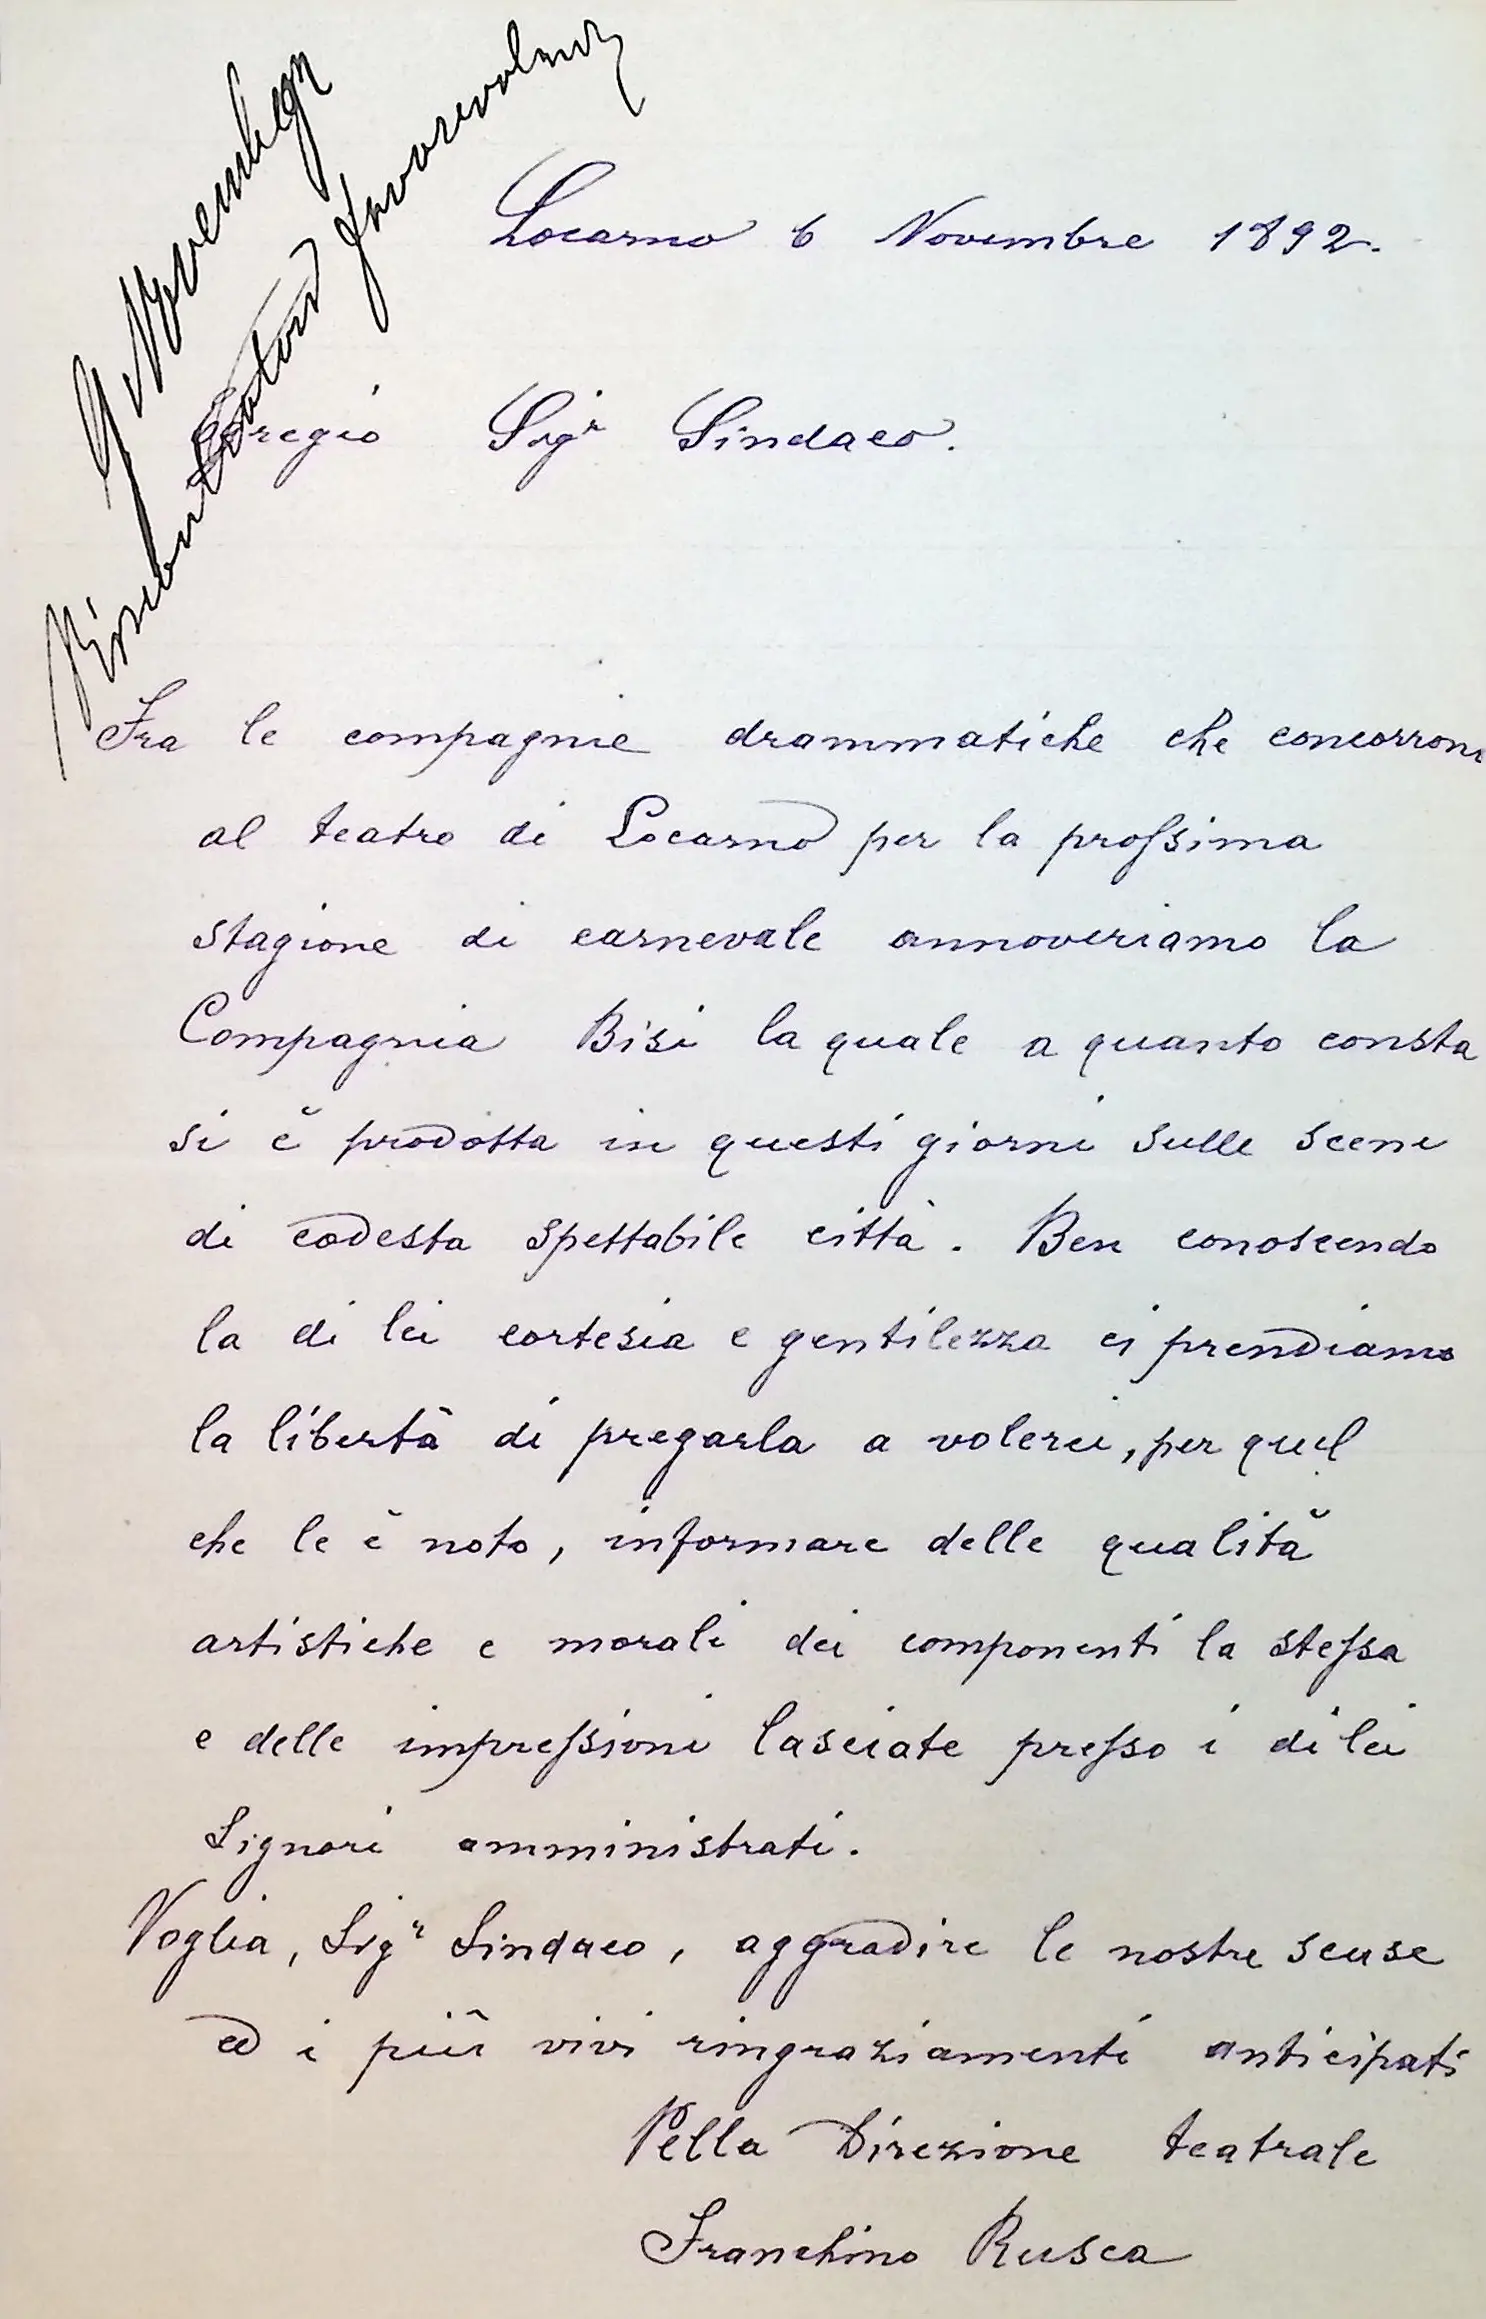 9 Novembre
favorevolmente
Locarno 6 Novembre 1892.
Egregio Sigr Sindaco.
Fra le compagnie drammatiche che concorrono
al teatro di Locarno per la proſsima
stagione di carnevale annoveriamo la
Compagnia Bisi la quale a quanto consta
si è prodotta in questi giorni sulle scene
di codesta spettabile città. Ben conoscendo
la di lei cortesia e gentilezza ci prendiamo
la libertà di pregarla a volerci, per quel
che le è noto, informare delle qualità
artistiche e morali dei componenti la steſsa
e delle impreſsioni lasciate preſso i di lei
Signori amministrati.
Voglia, Sigr Sindaco, aggradire le nostre scuse
ed i più vivi ringraziamenti anticipati
Pella Direzione teatrale
Franchino Rusca